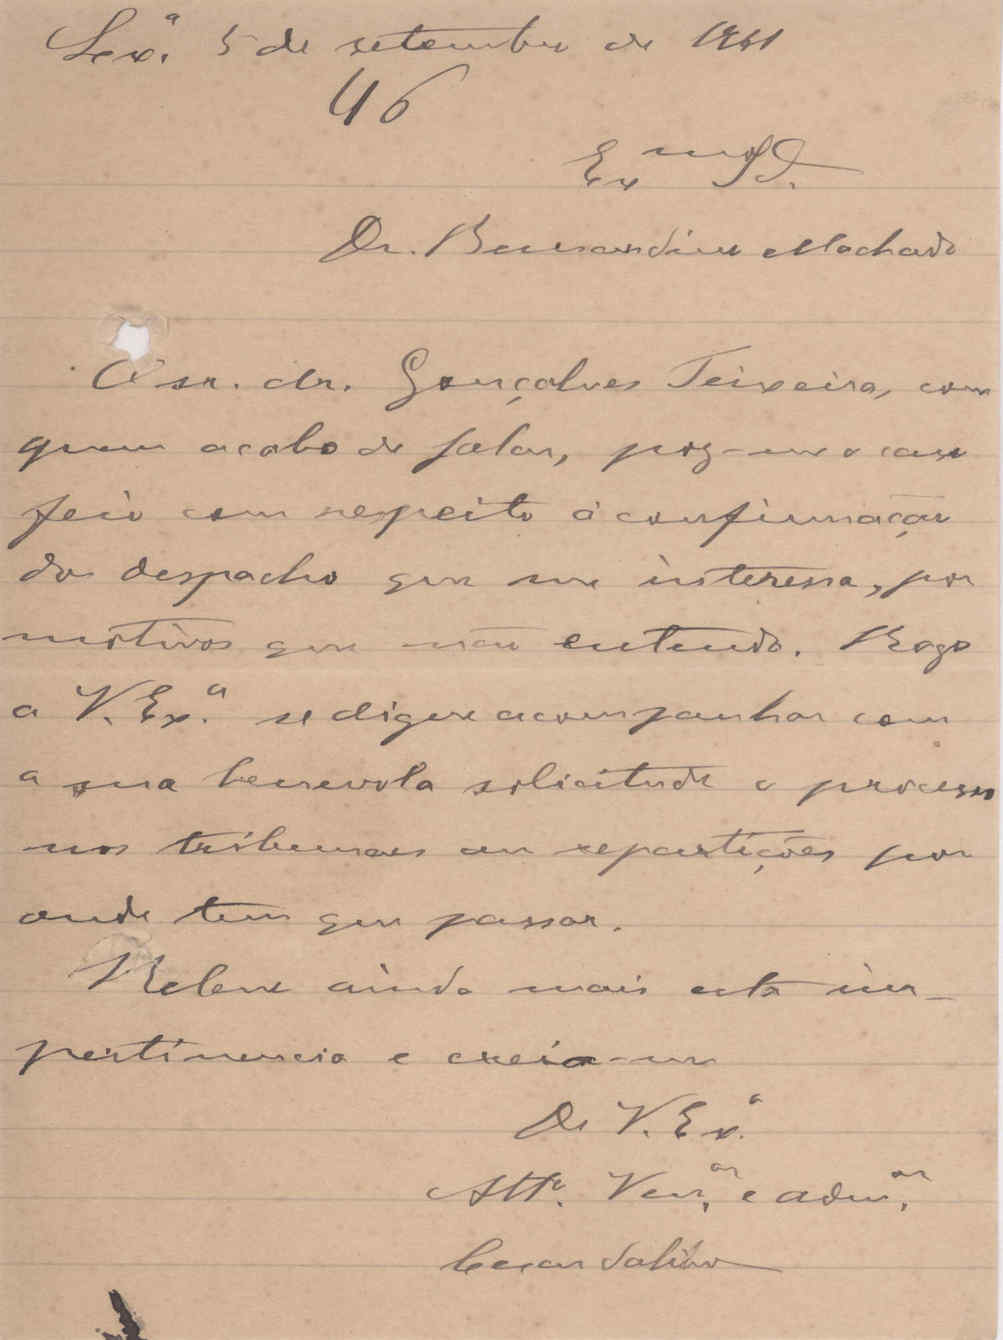 Lx.ª 5 de setembro de 1911
46
Ex.mo Sr.
Dr. Bernardino Machado
O sr. dr. Gonçalves Teixeira, com
quem acabo de falar, poz-me o caso
feio com respeito á confirmação
do despacho que me interessa, por
motivos que não entendo. Rogo
a V. Ex.ª se digne acompanhar com
a sua benevola solicitude o processo
nos tribunaes ou repartições por
onde tem que passar.
Releve ainda mais esta im-
pertinencia e creia-me
De V. Ex.ª
Att.º Ven.or e adm.or
Cesar